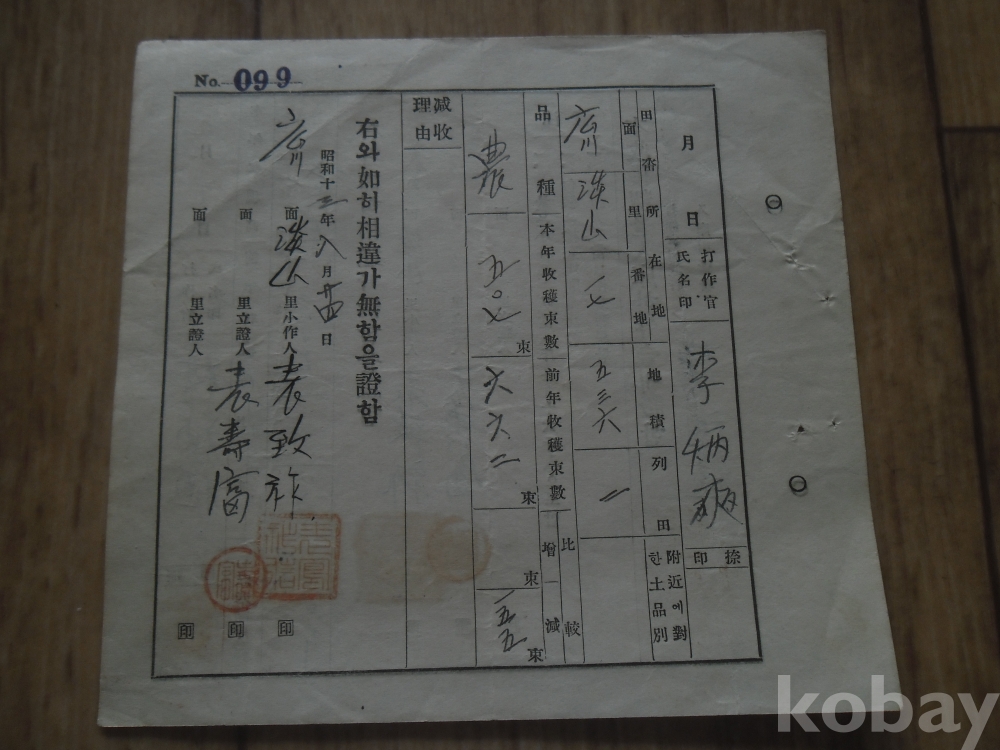 No. 099
月 日
打作官氏名印
李炳爽
捺印
田畓所在地
面 里 番地
地積
列田
附近에對한土品別
淡山 一七 五三六 二
品種
本年收穫束數
前年收穫束數
比較
增 減
農
五〇七束
六六二束
束
一五五束
減收理由
右와如히相違가無함을證함
昭和十三年八月廿四日
面 淡山 里小作人 袁致祚 印
面 里立證人 袁壽富 印
面 里立證人 印
kobay